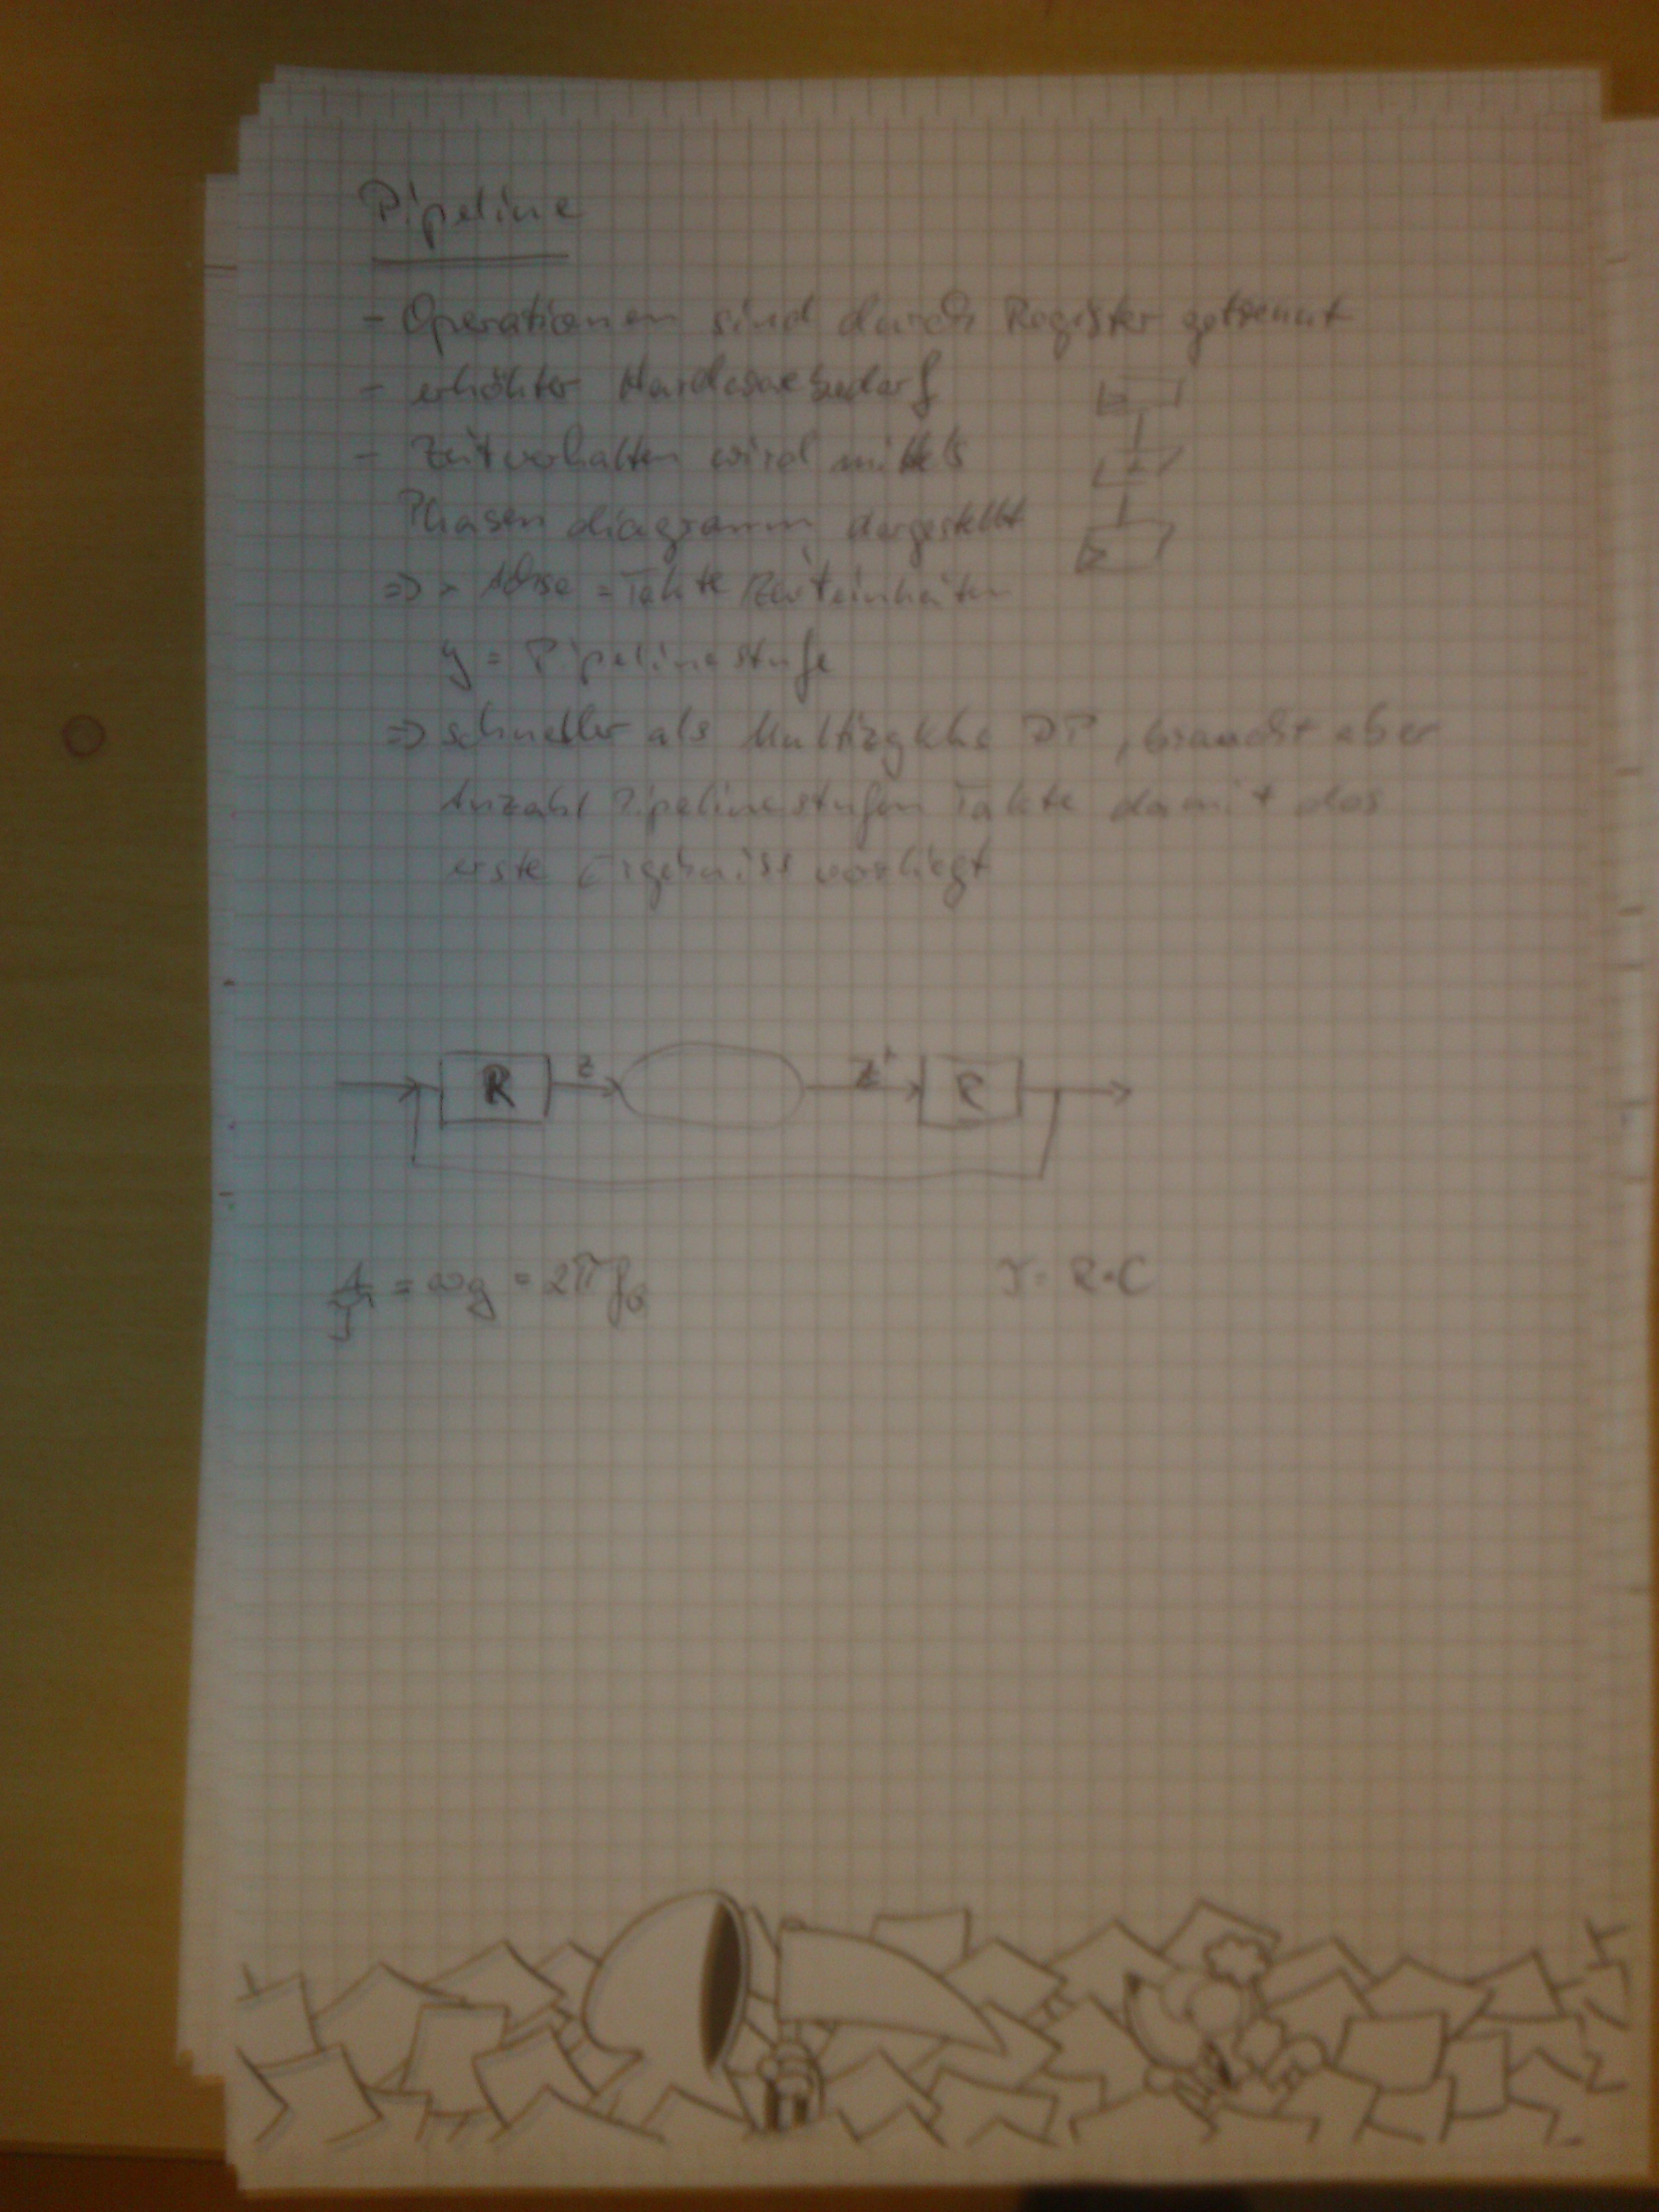 Pipeline
- Operationen sind durch Register getrennt
- erhöhter Hardwarebedarf
- Zeitverhalten wird mittels
Phasendiagramm dargestellt
=> x Achse = Takte / Zeiteinheiten
y = Pipelinestufe
=> schneller als Multizyklus DP, braucht aber
Anzahl Pipelinestufen Takte damit das
erste Ergebniss vorliegt
R z z+ R
1/τ = ωg = 2π fG τ = R·C